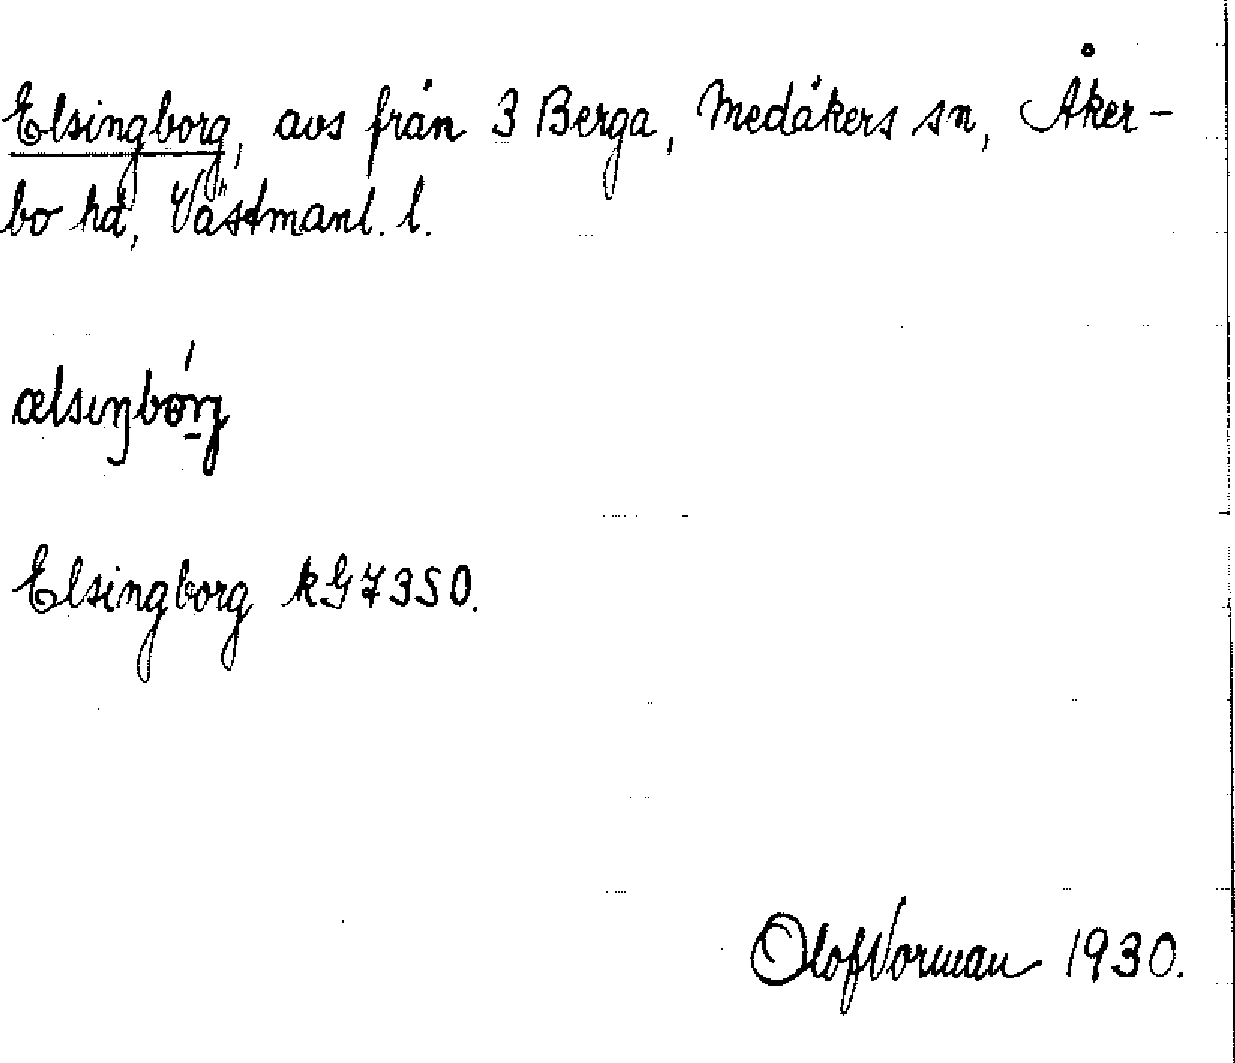 Elsingborg, avs från 3 Berga, Medåkers sn, Åker-
bo hd, Västmanl. l.
ælsıŋbórg
Elsingborg kG 7350.
Olof Norman 1930.